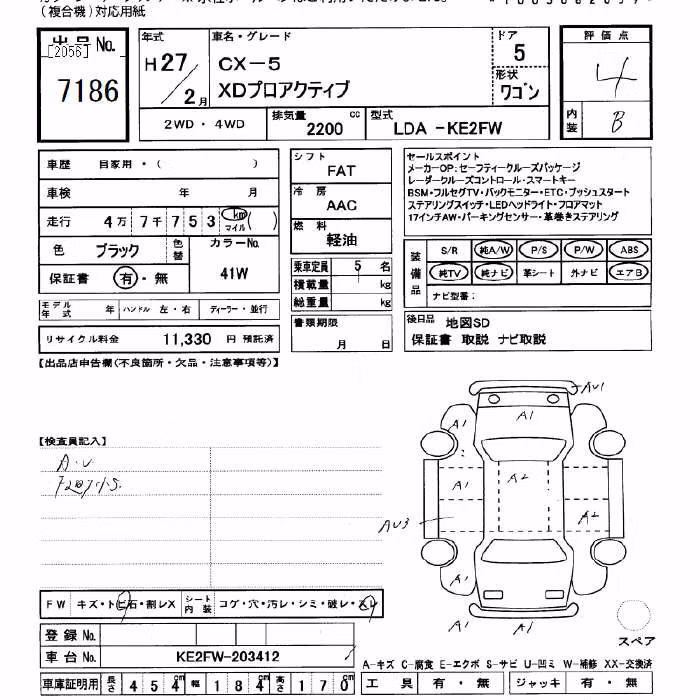 (複合機)対応用紙
出品No.
[2056]
7186
年式
H27/2月
車名・グレード
CX-5
XDプロアクティブ
ドア
5
形状
ワゴン
評価点
4
内装
B
2WD・4WD
排気量
2200
cc
型式
LDA -KE2FW
車歴 自家用・( )
車検 年 月
走行 4万7千753 km マイル ( )
色 ブラック 色替 カラーNo. 41W
保証書 有・無
モデル年式 年 ハンドル 左・右 ディーラー・並行
リサイクル料金 11,330 円 預託済
シフト
FAT
冷房
AAC
燃料
軽油
乗車定員 5 名
積載量 kg
総重量 kg
書類期限
月 日
セールスポイント
メーカーOP:セーフティークルーズパッケージ
レーダークルーズコントロール・スマートキー
BSM・フルセグTV・バックモニター・ETC・プッシュスタート
ステアリングスイッチ・LEDヘッドライト・フロアマット
17インチAW・パーキングセンサー・革巻きステアリング
装備品
S/R 純A/W P/S P/W ABS
純TV 純ナビ 革シート 外ナビ エアB
ナビ型番:
後日品 地図SD
保証書 取説 ナビ取説
【出品店申告欄(不良箇所・欠品・注意事項等)】
【検査員記入】
A・U
AU1
A1
A1
A1
A2
A1
A2
AU3
A1
A1
A1
スペア
FW キズ・トビ石・割レX シート内装 コゲ・穴・汚レ・シミ・破レ・スレ
登録No.
車台No. KE2FW-203412
車庫証明用 長さ 454cm 幅 184cm 高さ 170cm
A-キズ C-腐食 E-エクボ S-サビ U-凹ミ W-補修 XX-交換済
工具 有・無 ジャッキ 有・無